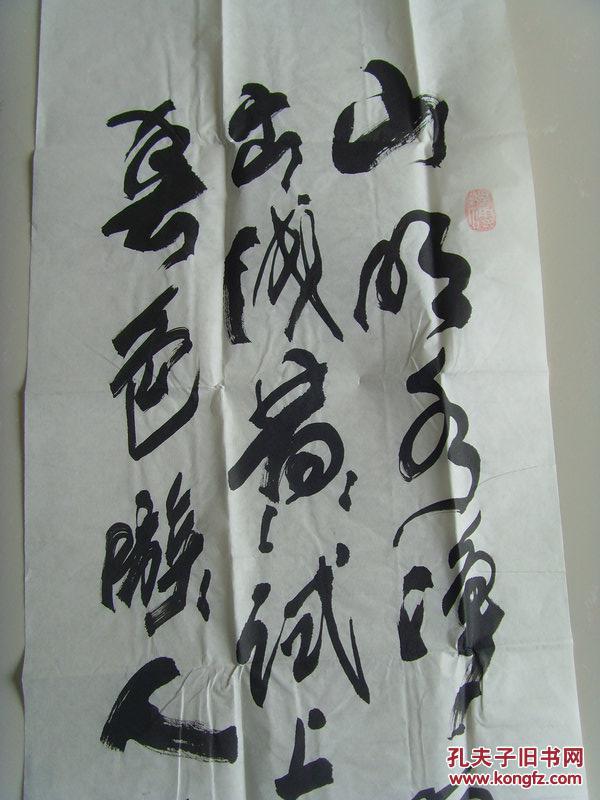 山明水净
出浅黄试上
春色嗾人
孔夫子旧书网
www.kongfz.com